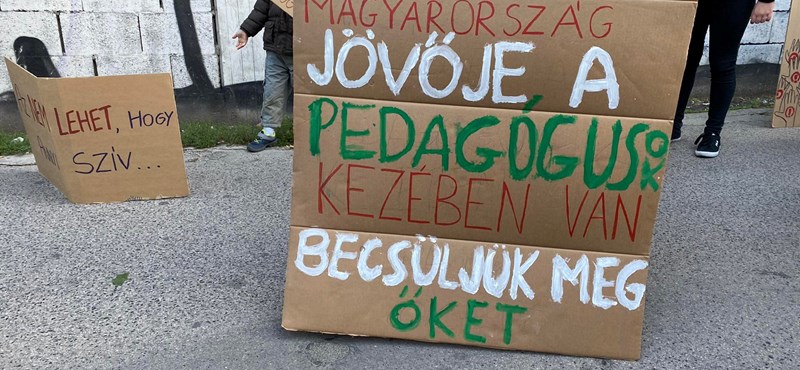 MAGYARORSZÁG
JÖVŐJE A
PEDAGÓGUSOK
KEZÉBEN VAN
BECSÜLJÜK MEG
ŐKET
NEM LEHET, HOGY
SZÍV...